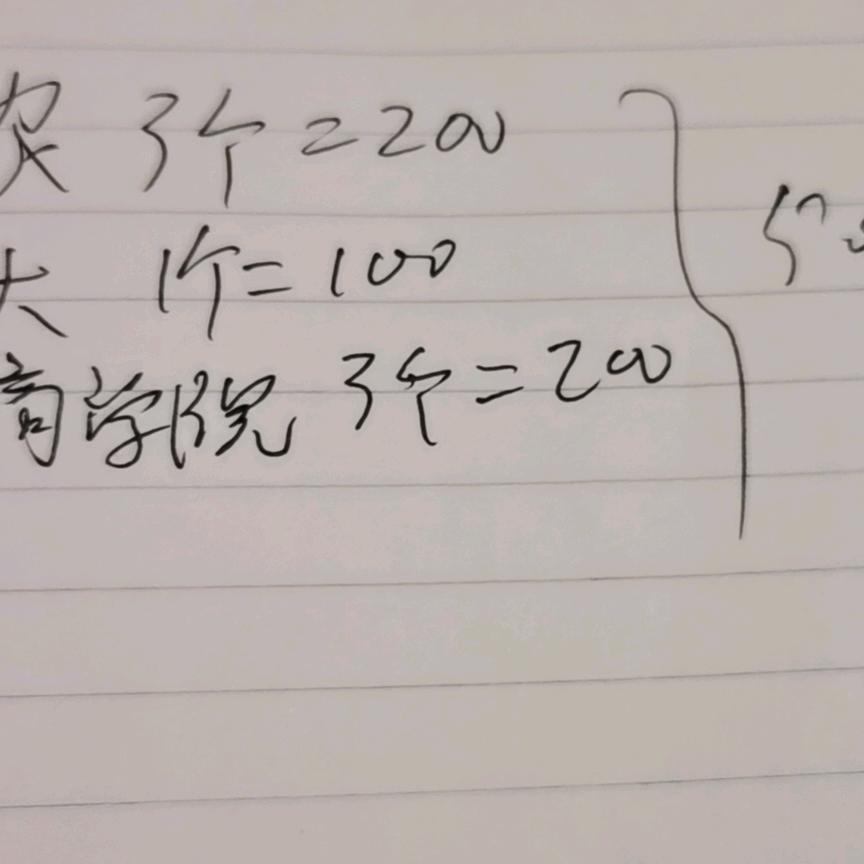 农 3个=200
大 1个=100
育学院 3个=200